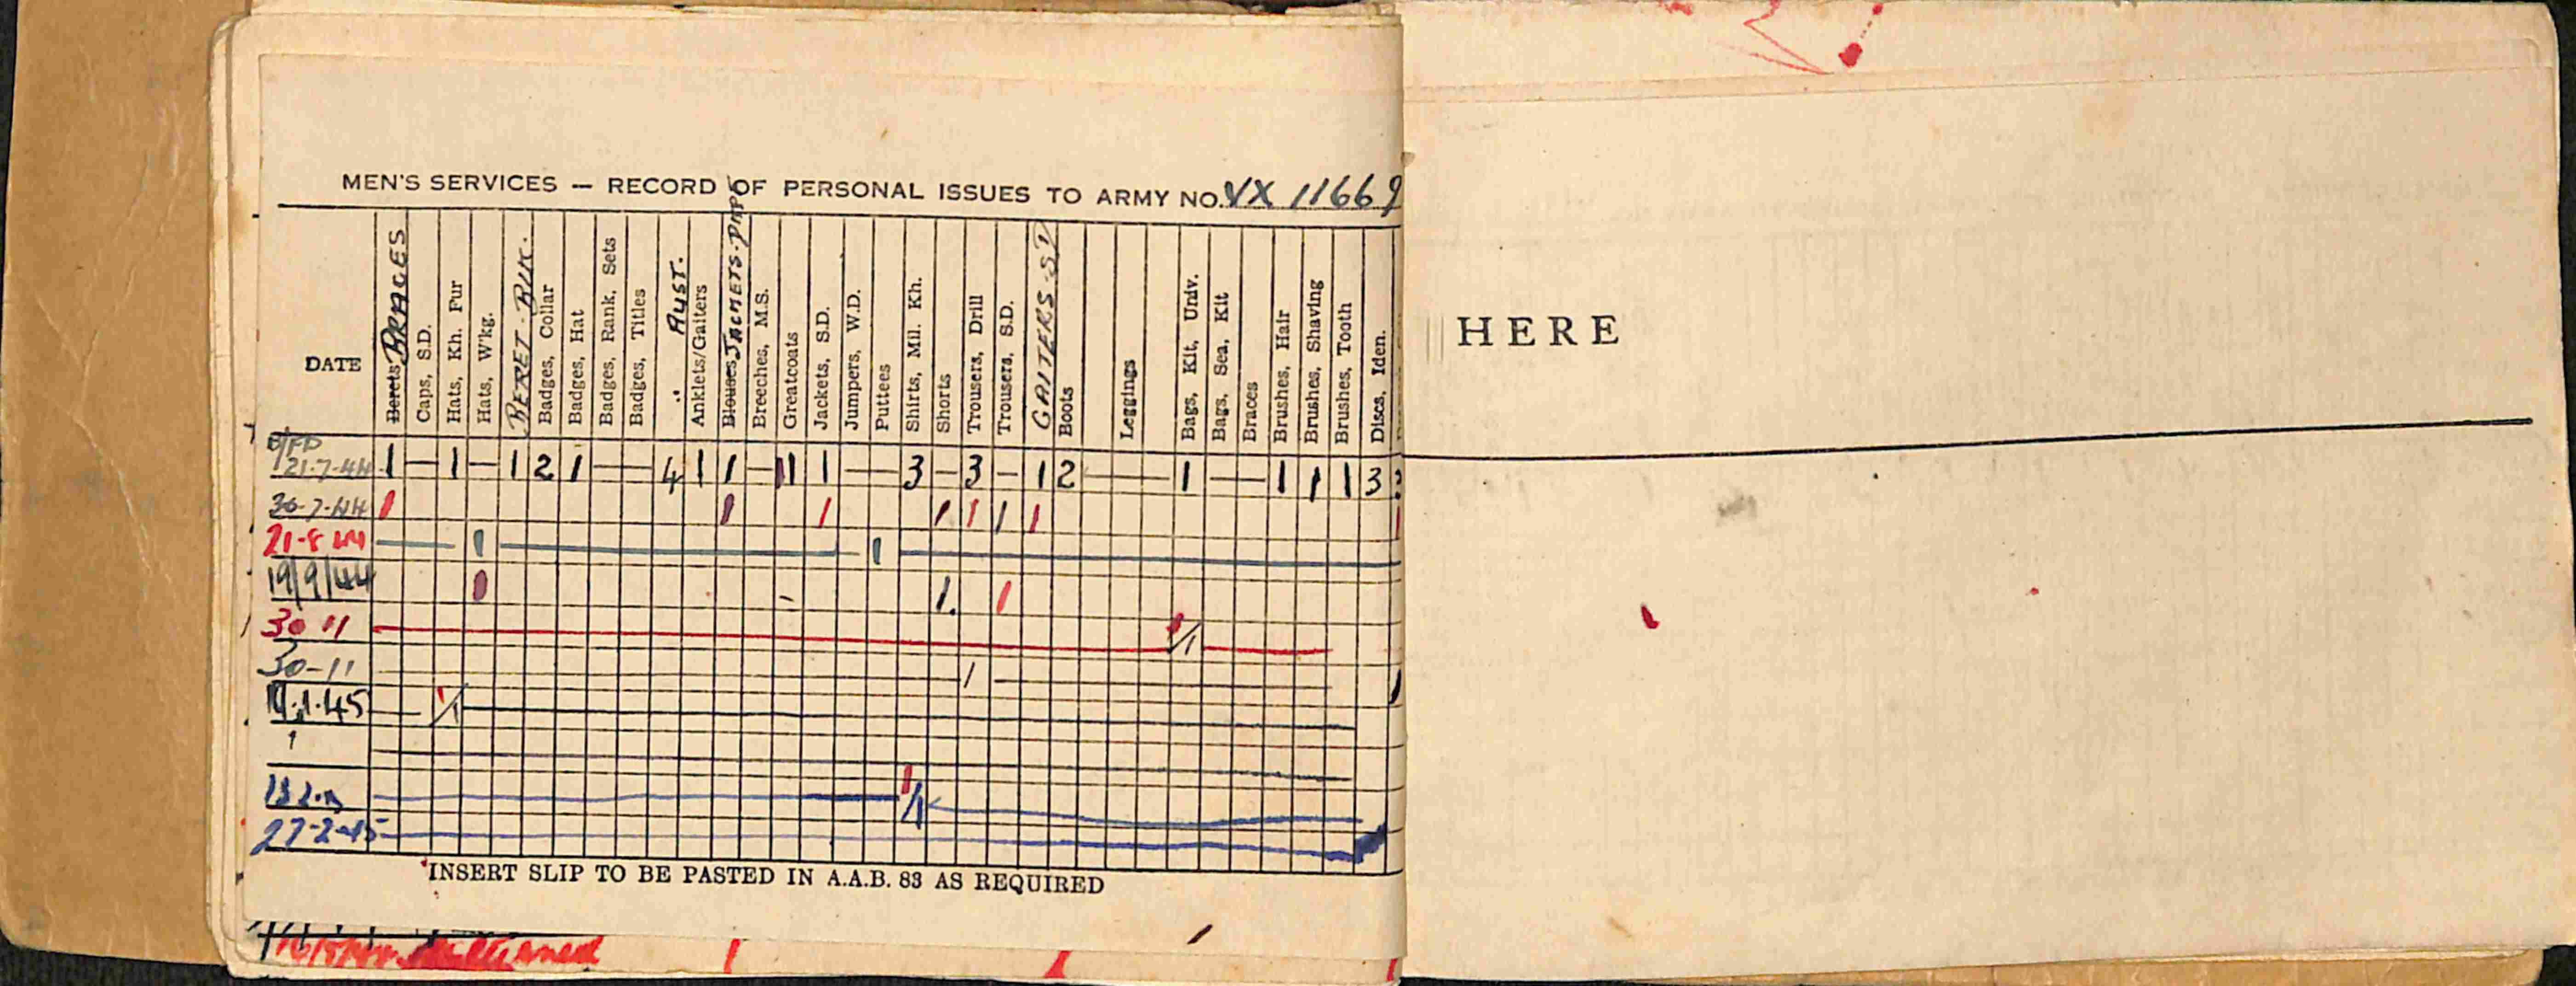 MEN'S SERVICES — RECORD OF PERSONAL ISSUES TO ARMY NO. VX 11669
DATE
Berets BRACES
Caps, S.D.
Hats, Kh. Fur
Hats, W'kg.
BERET - BLK.
Badges, Collar
Badges, Hat
Badges, Rank, Sets
Badges, Titles
" AUST.
Anklets/Gaiters
Blouses JACKETS
Breeches, M.S.
Greatcoats
Jackets, S.D.
Jumpers, W.D.
Puttees
Shirts, Mil. Kh.
Shorts
Trousers, Drill
Trousers, S.D.
GAITERS - S
Boots
Leggings
Bags, Kit, Univ.
Bags, Sea, Kit
Braces
Brushes, Hair
Brushes, Shaving
Brushes, Tooth
Discs, Iden.
B/FD
21-7-44 1 — 1 — 1 2 1 — 4 1 1 — 1 1 — 3 — 3 — 1 2 — 1 — 1 1 1 3
1 1 1 1 1 1 1
21-8-44 1 1
19/9/44 1. 1
30 11 1/1
30-11 1
1.45 1/1
1/1
27-2-45
*INSERT SLIP TO BE PASTED IN A.A.B. 83 AS REQUIRED
HERE